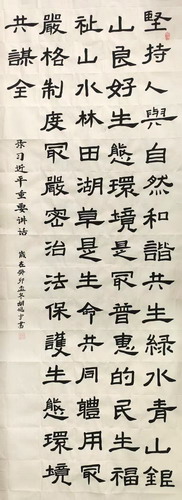 堅持人與自然和諧共生綠水青山銀
山良好生態環境是冣普惠的民生福
祉山水林田湖草是生命共同體用冣
嚴格制度冣嚴密治法保護生態環境
共謀全
习近平重要讲话
歲在癸卯孟冬胡